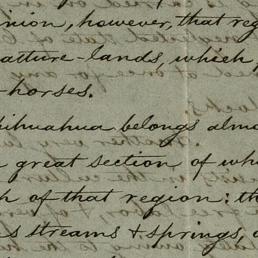 inion, however, that reg
asture-lands, which
-horses.
hihuahua belongs almo
great section of wh
h of that region: th
s streams & springs,